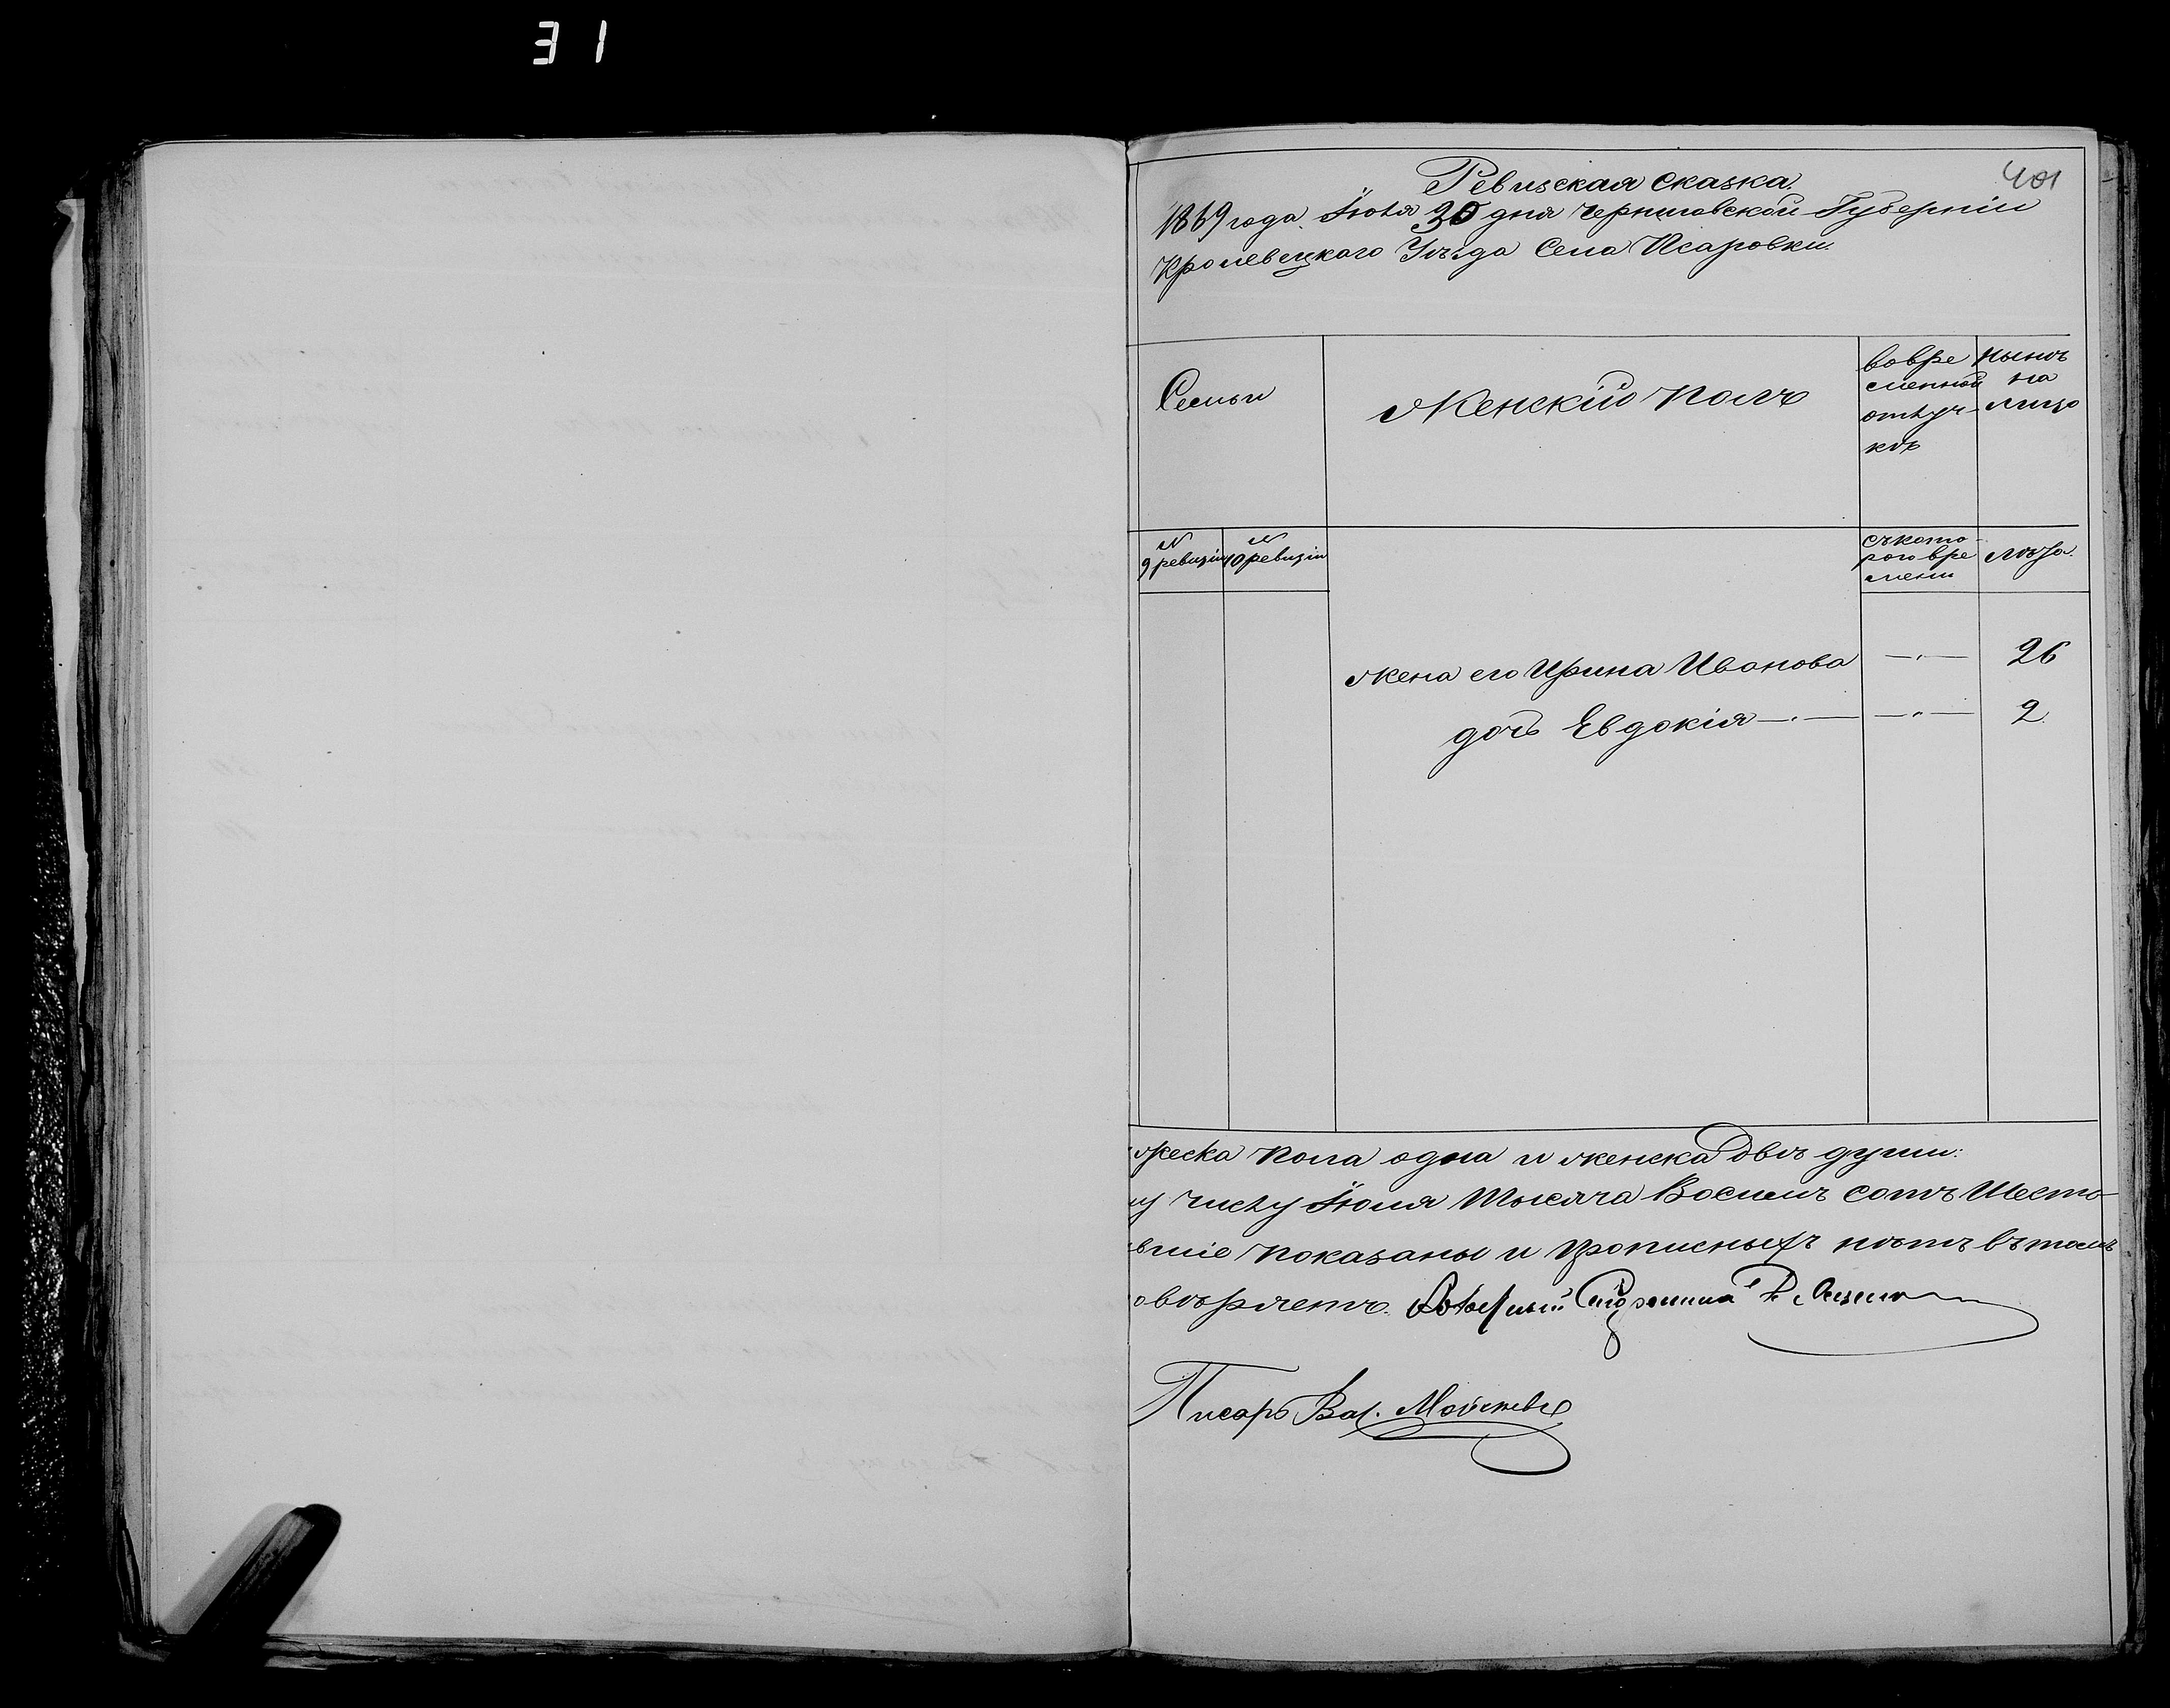 31
401
Ревизская сказка.
1869 года Іюля 30 дня Черниговской Губерніи
Кролевецкаго Уѣзда Села Псаровки.
Семьи
Женскій полъ
вовре
менной
отлуч-
кѣ
нынѣ
на
лицо
№
9 ревизіи
№
10 ревизіи
съ кото-
рого вре
мени
лѣта.
жена его Ирина Иванова — 26
дочь Евдокія — — 2
жеска пола одна и женска двѣ души:
му числу Іюля Тысяча Восемь сотъ Шесть-
вшіе показаны и прописныхъ нѣтъ въ томъ
овѣряетъ.
Писарь Вас.